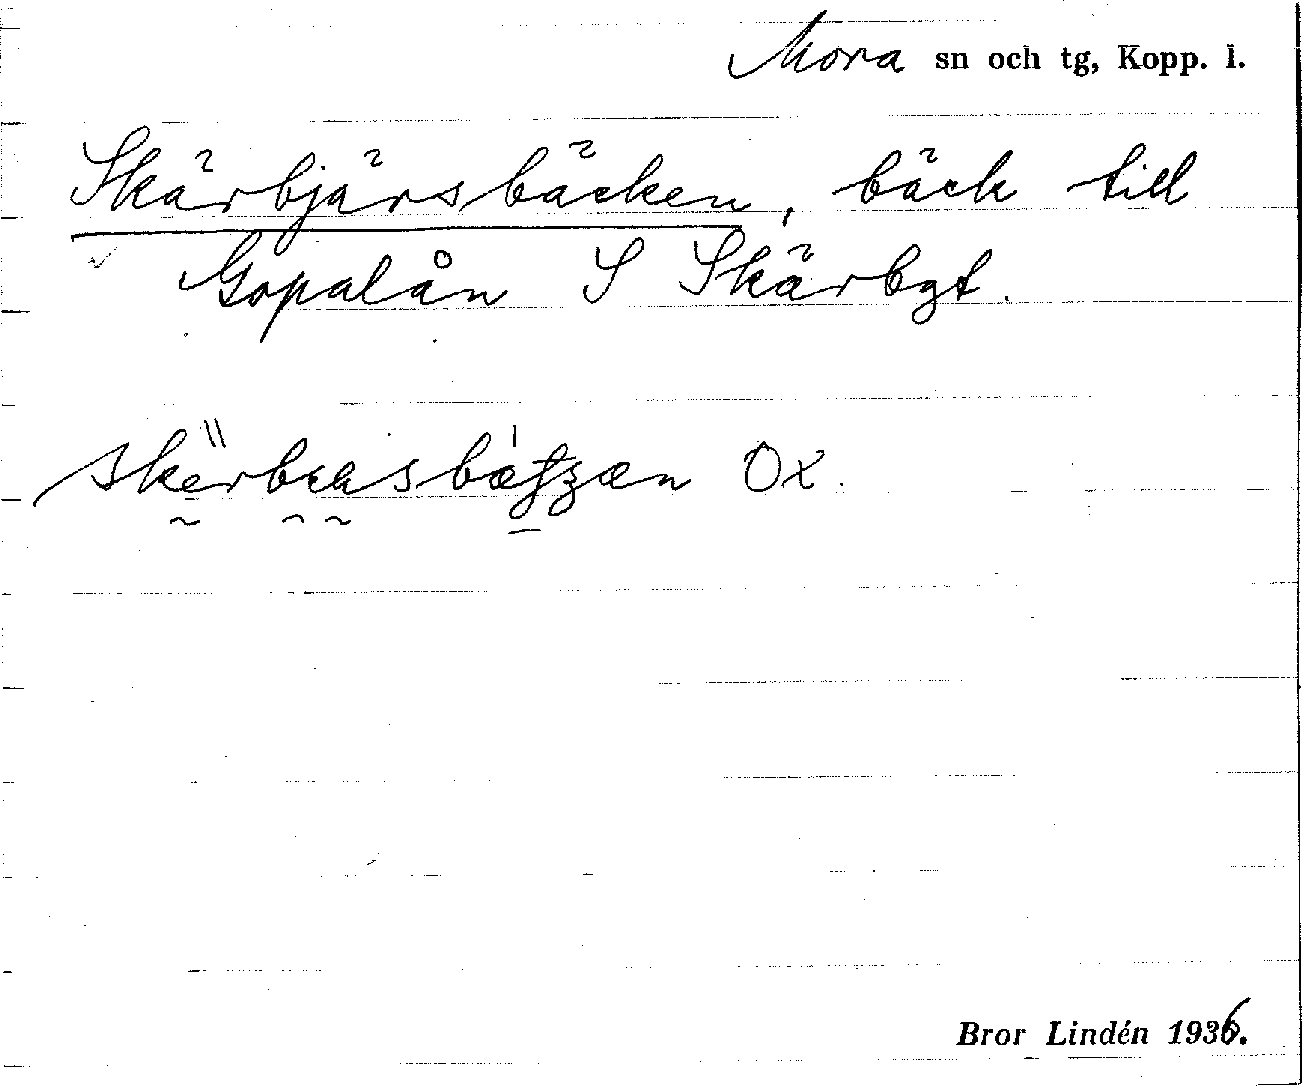 Mora sn och tg, Kopp. l.
Skärbjärsbäcken, bäck till
Gopalån S Skärbgt.
Ox.
Bror Lindén 1936.